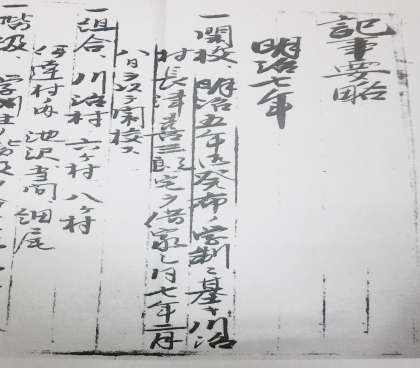 記事要略
明治七年
一開校、明治五年御発布ノ学制ニ基キ川治
村長津喜三郎宅ヲ借家シ同七年二月
八日ヲ以テ開校ス
一組合、川治村六ヶ村八ヶ村
伊達村ノ内池沢、寺間、細尾
一階級、